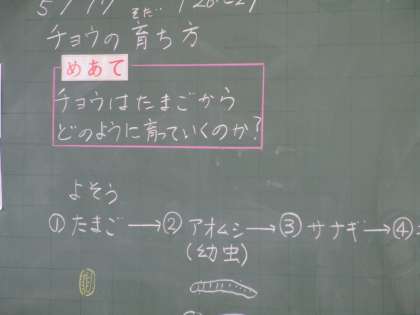 5/17
そだ
チョウの育ち方
めあて
チョウはたまごから
どのように育っていくのか?
よそう
①たまご→②アオムシ→③サナギ→④
(幼虫)